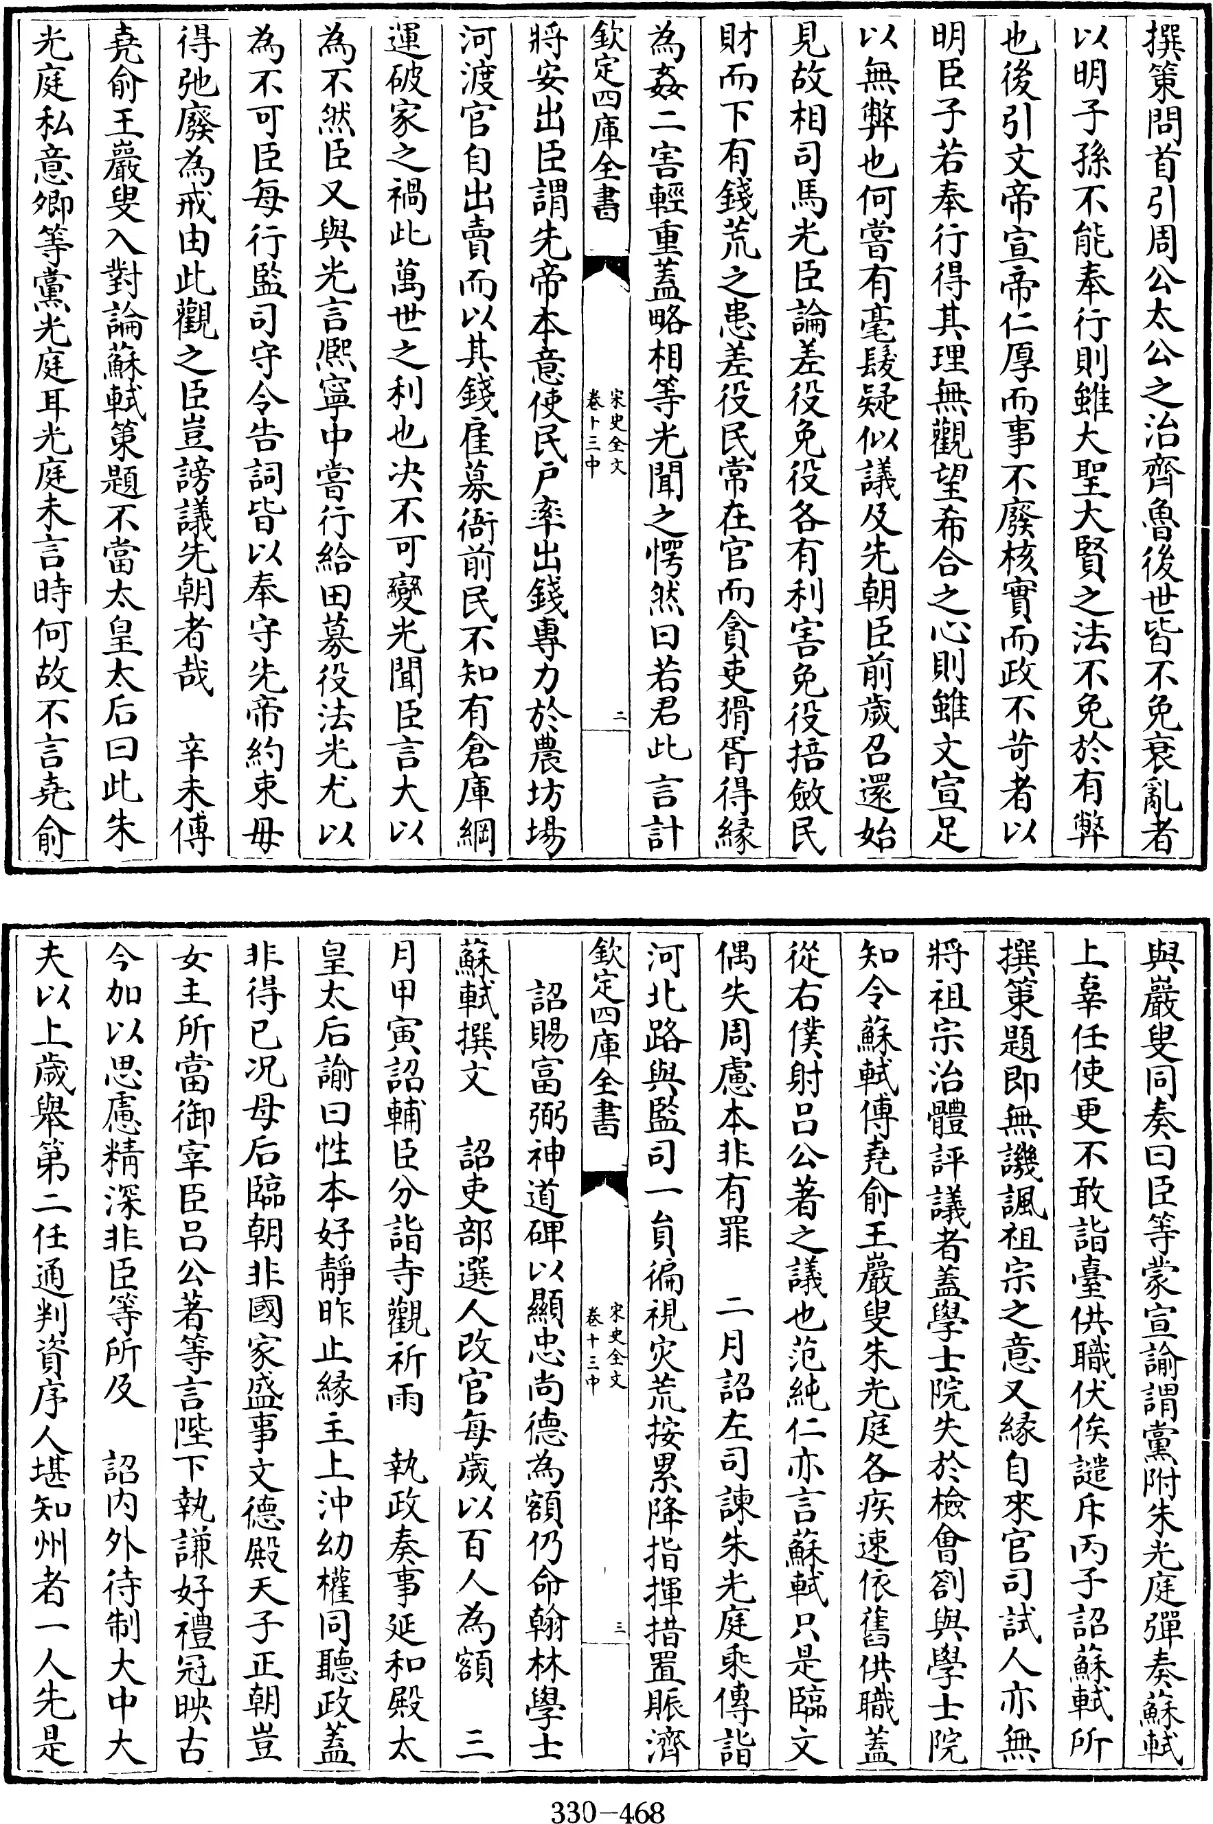 撰策問首引周公太公之治齊魯後世皆不免衰亂者
以明子孫不能奉行則雖大聖大賢之法不免於有弊
也後引文帝宣帝仁厚而事不廢核實而政不苛者以
明臣子若奉行得其理無觀望希合之心則雖文宣足
以無弊也何嘗有毫髮疑似議及先朝臣前歲召還始
見故相司馬光臣論差役免役各有利害免役掊斂民
財而下有錢荒之患差役民常在官而貪吏猾胥得緣
為姦二害輕重蓋略相等光聞之愕然曰若君此言計
欽定四庫全書
宋史全文
卷十三中
二
將安出臣謂先帝本意使民戶率出錢專力於農坊場
河渡官自出賣而以其錢雇募衙前民不知有倉庫綱
運破家之禍此萬世之利也决不可變光聞臣言大以
為不然臣又與光言熙寧中嘗行給田募役法光尤以
為不可臣每行監司守令告詞皆以奉守先帝約束毋
得弛廢為戒由此觀之臣豈謗議先朝者哉　辛未傅
堯俞王巖叟入對論蘇軾策題不當太皇太后曰此朱
光庭私意卿等黨光庭耳光庭未言時何故不言堯俞
與巖叟同奏曰臣等蒙宣諭謂黨附朱光庭彈奏蘇軾
上辜任使更不敢詣臺供職伏俟譴斥丙子詔蘇軾所
撰策題即無譏諷祖宗之意又緣自來官司試人亦無
將祖宗治體評議者蓋學士院失於檢會劄與學士院
知令蘇軾傅堯俞王巖叟朱光庭各疾速依舊供職蓋
從右僕射呂公著之議也范純仁亦言蘇軾只是臨文
偶失周慮本非有罪　二月詔左司諫朱光庭乘傳詣
河北路與監司一員徧視灾荒按累降指揮措置賑濟
欽定四庫全書
宋史全文
卷十三中
三
詔賜富弼神道碑以顯忠尚德為額仍命翰林學士
蘇軾撰文　詔吏部選人改官每歲以百人為額　三
月甲寅詔輔臣分詣寺觀祈雨　執政奏事延和殿太
皇太后諭曰性本好靜昨止緣主上沖幼權同聽政蓋
非得已况母后臨朝非國家盛事文德殿天子正朝豈
女主所當御宰臣呂公著等言陛下執謙好禮冠映古
今加以思慮精深非臣等所及　詔內外待制大中大
夫以上歲舉第二任通判資序人堪知州者一人先是
330-468